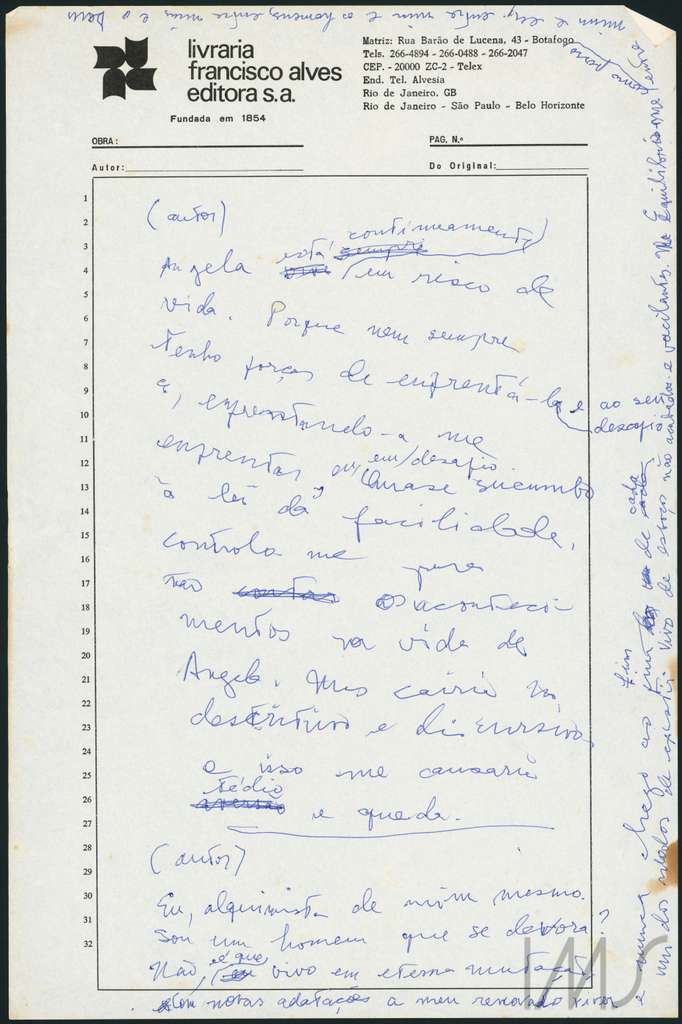 livraria
francisco alves
editora s.a.
Fundada em 1854
Matriz: Rua Barão de Lucena, 43 - Botafogo
Tels. 266-4894 - 266-0488 - 266-2047
CEP. - 20000 ZC-2 - Telex
End. Tel. Alvesia
Rio de Janeiro, GB
Rio de Janeiro - São Paulo - Belo Horizonte
OBRA:
PAG. N.º
Autor:
Do Original:
1
2
3
4
5
6
7
8
9
10
11
12
13
14
15
16
17
18
19
20
21
22
23
24
25
26
27
28
29
30
31
32
(autor)
continuamente
está sempre
Angela em risco de
vida. Porque nem sempre
tenho forças de enfrentá-la e ao seu
desafio
e, enfrentando-a, me
enfrentar em desafio.
Quase sucumbo
à lei da facilidade,
controlo me para
não contar os aconteci
mentos na vida de
Angela. Mas cairia no
descritivo e discursivo
e isso me causaria
tédio
aversão e queda.
(autor)
Eu, alquimista de mim mesmo.
Sou um homem que se devora?
Não, é que vivo em eterna mutação,
com novas adaptações a meu renovado viver
e nunca chego ao fim de cada
um dos modos de existir. Vivo de esboços não acabados e vacilantes. Me equilibrio como
posso
entre mim e eu, entre mim e os homens, entre mim e o Deus
IMS